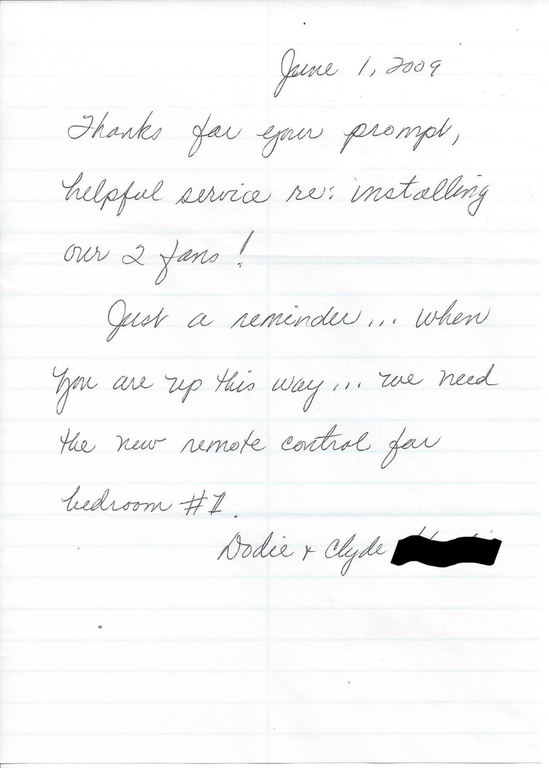 June 1, 2009
Thanks for your prompt,
helpful service re: installing
our 2 fans!
Just a reminder... when
you are up this way... we need
the new remote control for
bedroom #1.
Dodie & Clyde